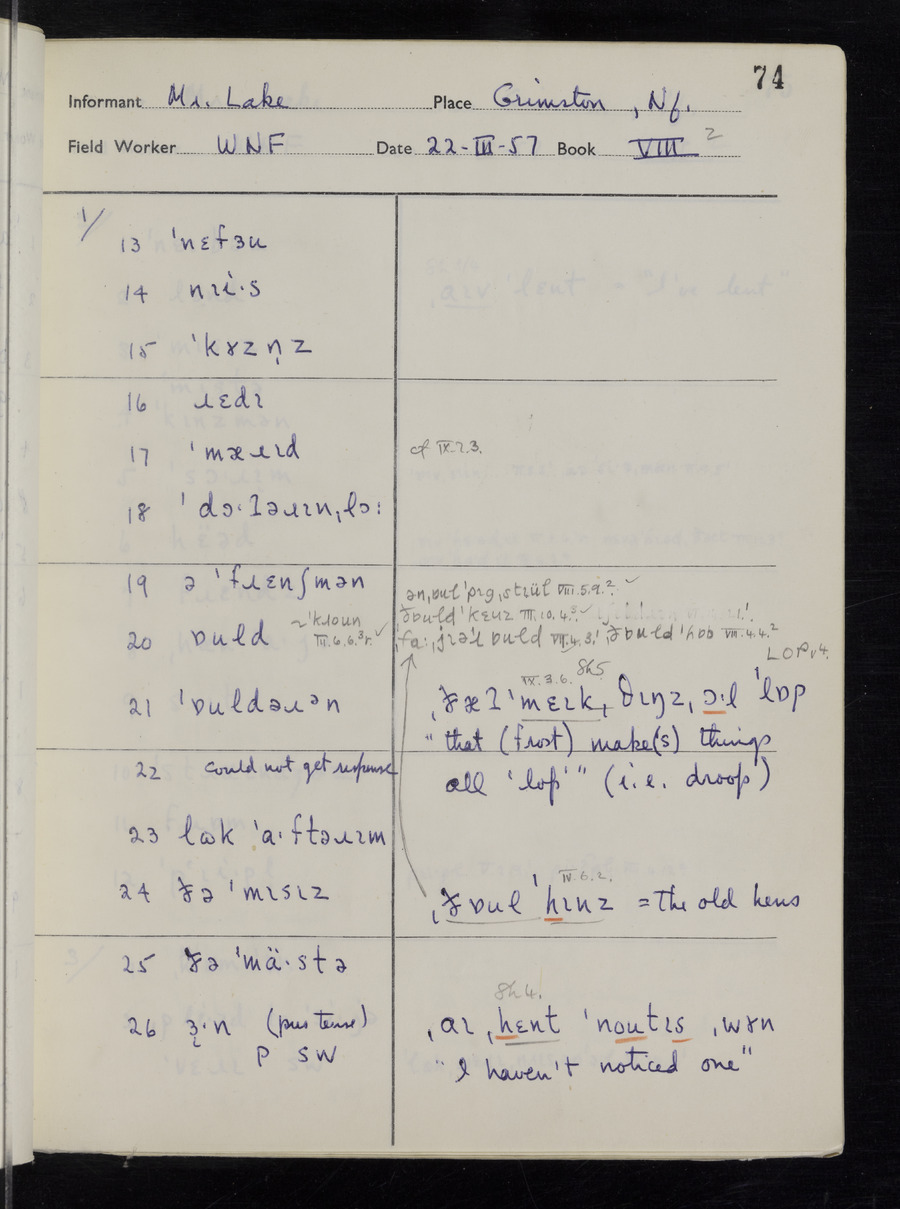 74
Informant Mr. Lake Place Grimston, Nf.
Field Worker WNF Date 22-III-57 Book VIII 2
1/
13 ˈnɛfɜu
14 nɪiˑs
15 ˈkɤzn̩z
16 ɹɛdɪ
17 ˈmæɹɪd
cf IX.2.3.
18 ˈdɔˑʔəɹɪnˌlɔː
19 ə ˈfɹɛnʃmən
VIII.5.9.² ✓
20 ɒuld
III.6.6.³r. ✓
III.10.4.³ ✓
ɒuld VII.4.3! ðɒuld ˈhɒə VIII.4.4.²
LOP v4.
21 ˈɒuldəɹən
IX.3.6. Sh5
ˌðæʔ ˈmɛɪk, θɪŋz, ɔˑl ˈlɒp
"that (frost) make(s) things
22 could not get response
all 'lop'" (i.e. droop)
23 lɷk ˈaˑftəɹɪm
24 ðə ˈmɪsɪz
IV.6.2.
ˌðɒul ˈhɪnz = the old hens
25 ðə ˈmäˑstə
26 ɜ̨ˑn (pres tense)
P SW
Sh 4.
ˌaɪ ˌhɛnt ˈnoutɪs ˌwɤn
"I haven't noticed one"